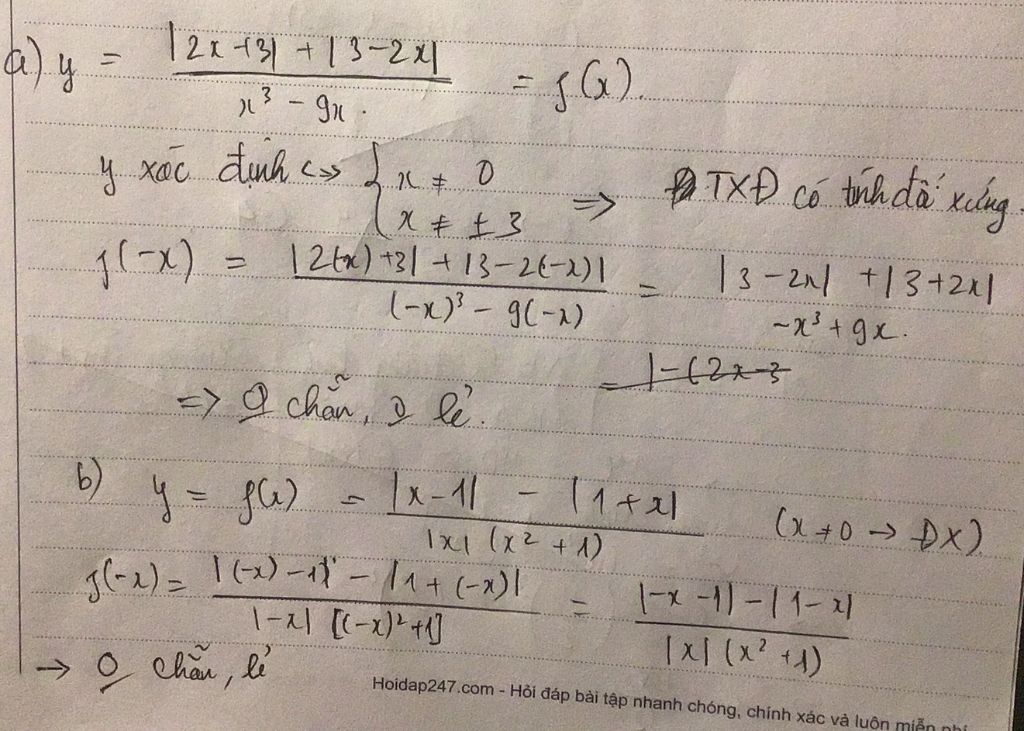 a) y = |2x+3| + |3-2x| / x³ - 9x = f(x).
y xác định <=> { x ≠ 0
{ x ≠ ±3 => TXĐ có tính đối xứng.
f(-x) = |2(-x)+3| + |3-2(-x)| / (-x)³ - 9(-x) = |3-2x| + |3+2x| / -x³ + 9x.
= |-(2x-3
=> O chẵn, O lẻ.
b) y = f(x) = |x-1| - |1+x| / |x| (x² + 1) (x ≠ 0 → ĐX)
f(-x) = |(-x)-1| - |1+(-x)| / |-x| [(-x)²+1] = |-x-1| - |1-x| / |x| (x² + 1)
→ O chẵn, lẻ
Hoidap247.com - Hỏi đáp bài tập nhanh chóng, chính xác và luôn miễn phí